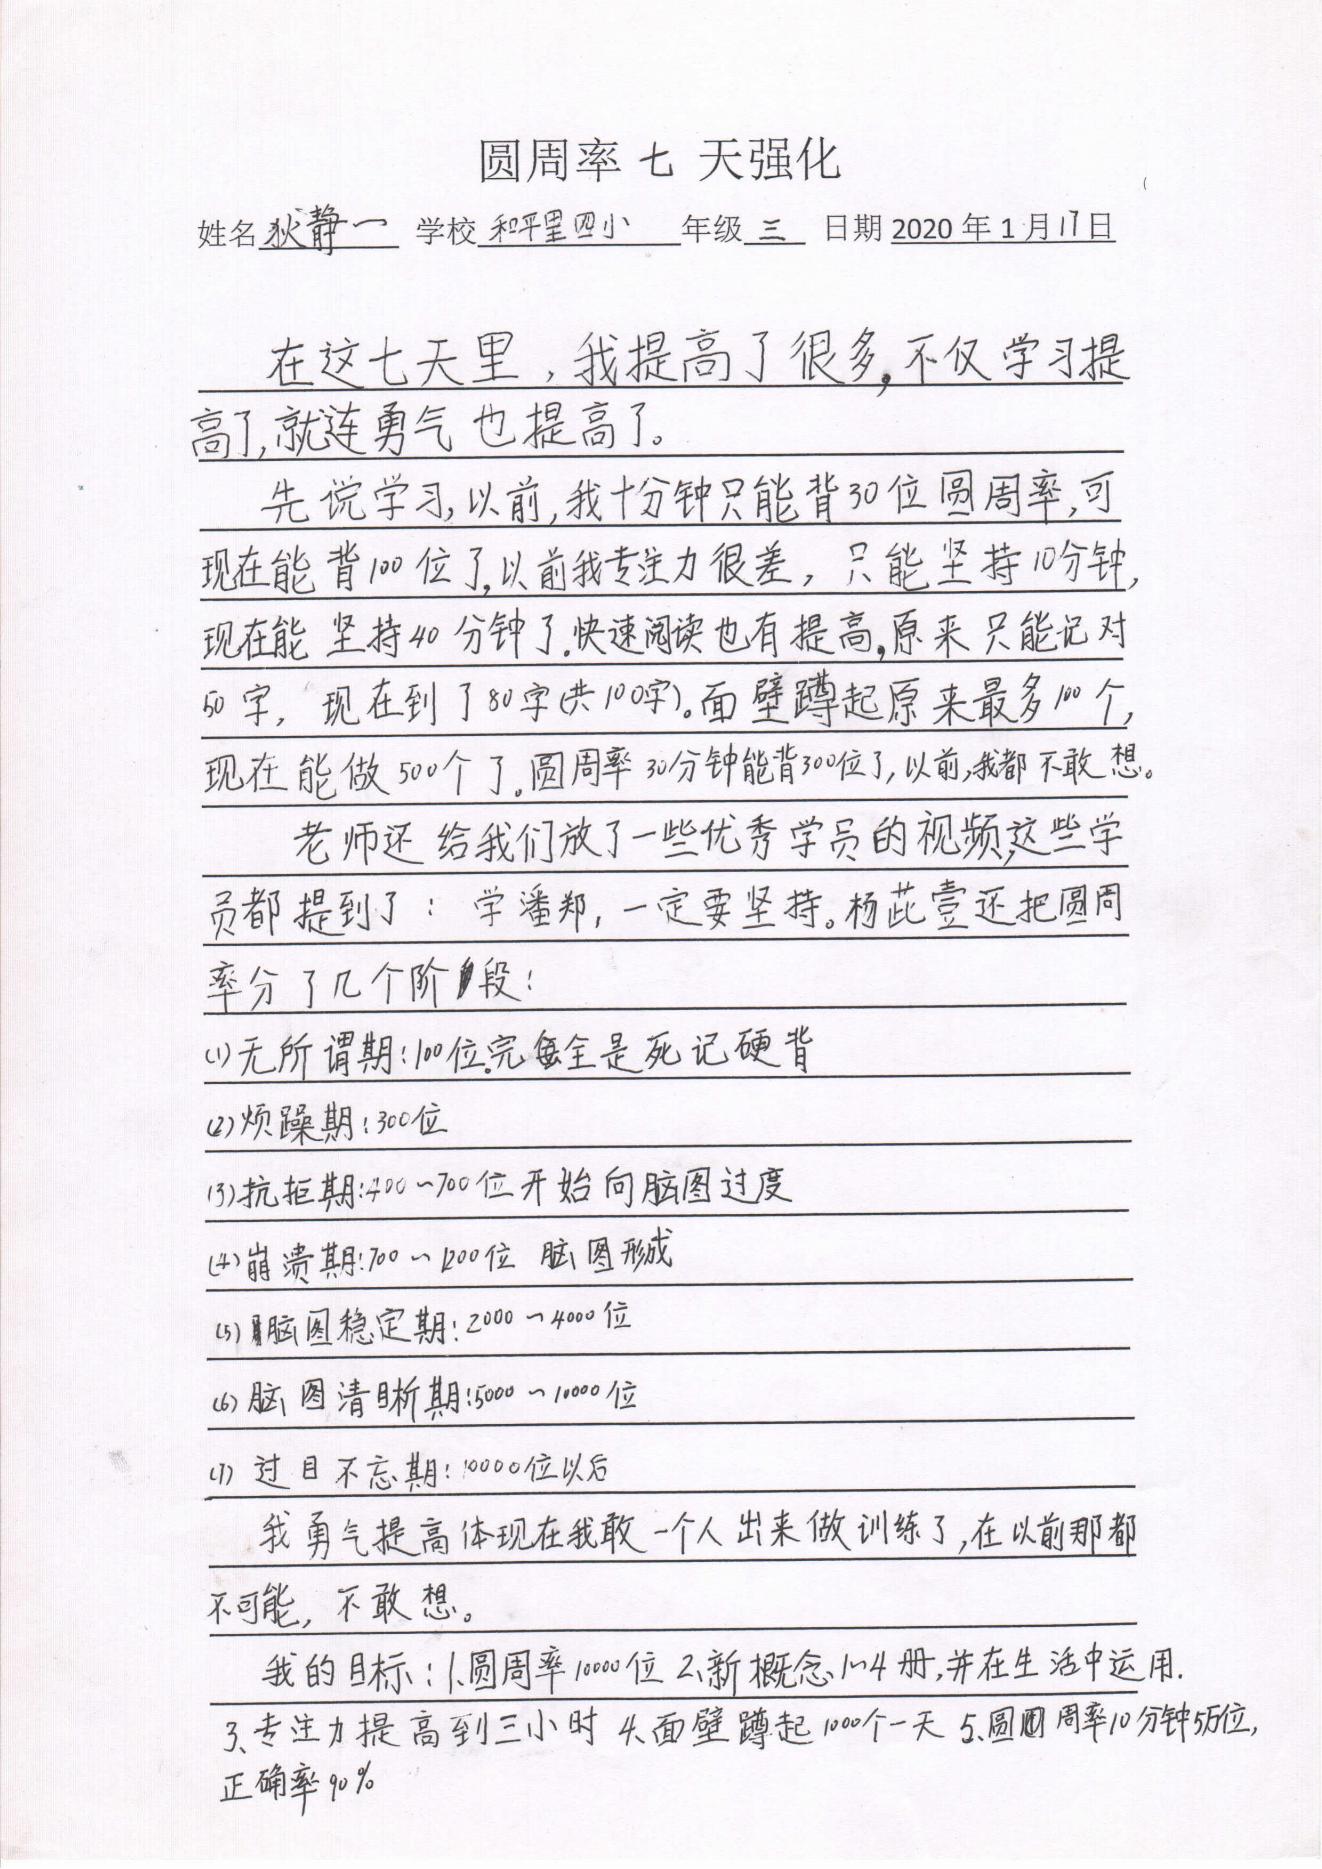 圆周率七天强化
姓名狄静一 学校和平里四小 年级三 日期2020年1月17日
在这七天里，我提高了很多，不仅学习提
高了，就连勇气也提高了。
先说学习，以前，我十分钟只能背30位圆周率，可
现在能背100位了，以前我专注力很差，只能坚持10分钟，
现在能坚持40分钟了．快速阅读也有提高，原来只能记对
50字，现在到了80字(共100字)。面壁蹲起原来最多100个，
现在能做500个了。圆周率30分钟能背300位了，以前，我都不敢想。
老师还给我们放了一些优秀学员的视频，这些学
员都提到了：学潘郑，一定要坚持。杨茈壹还把圆周
率分了几个阶段：
(1)无所谓期：100位．完全是死记硬背
(2)烦躁期：300位
(3)抗拒期：400~700位开始向脑图过度
(4)崩溃期：700~1200位 脑图形成
(5)脑图稳定期：2000~4000位
(6)脑图清晰期：5000~10000位
(7)过目不忘期：10000位以后
我勇气提高体现在我敢一个人出来做训练了，在以前那都
不可能，不敢想。
我的目标：1、圆周率10000位 2、新概念1~4册，并在生活中运用．
3、专注力提高到三小时 4、面壁蹲起1000个一天 5、圆周率10分钟5万位，
正确率90%